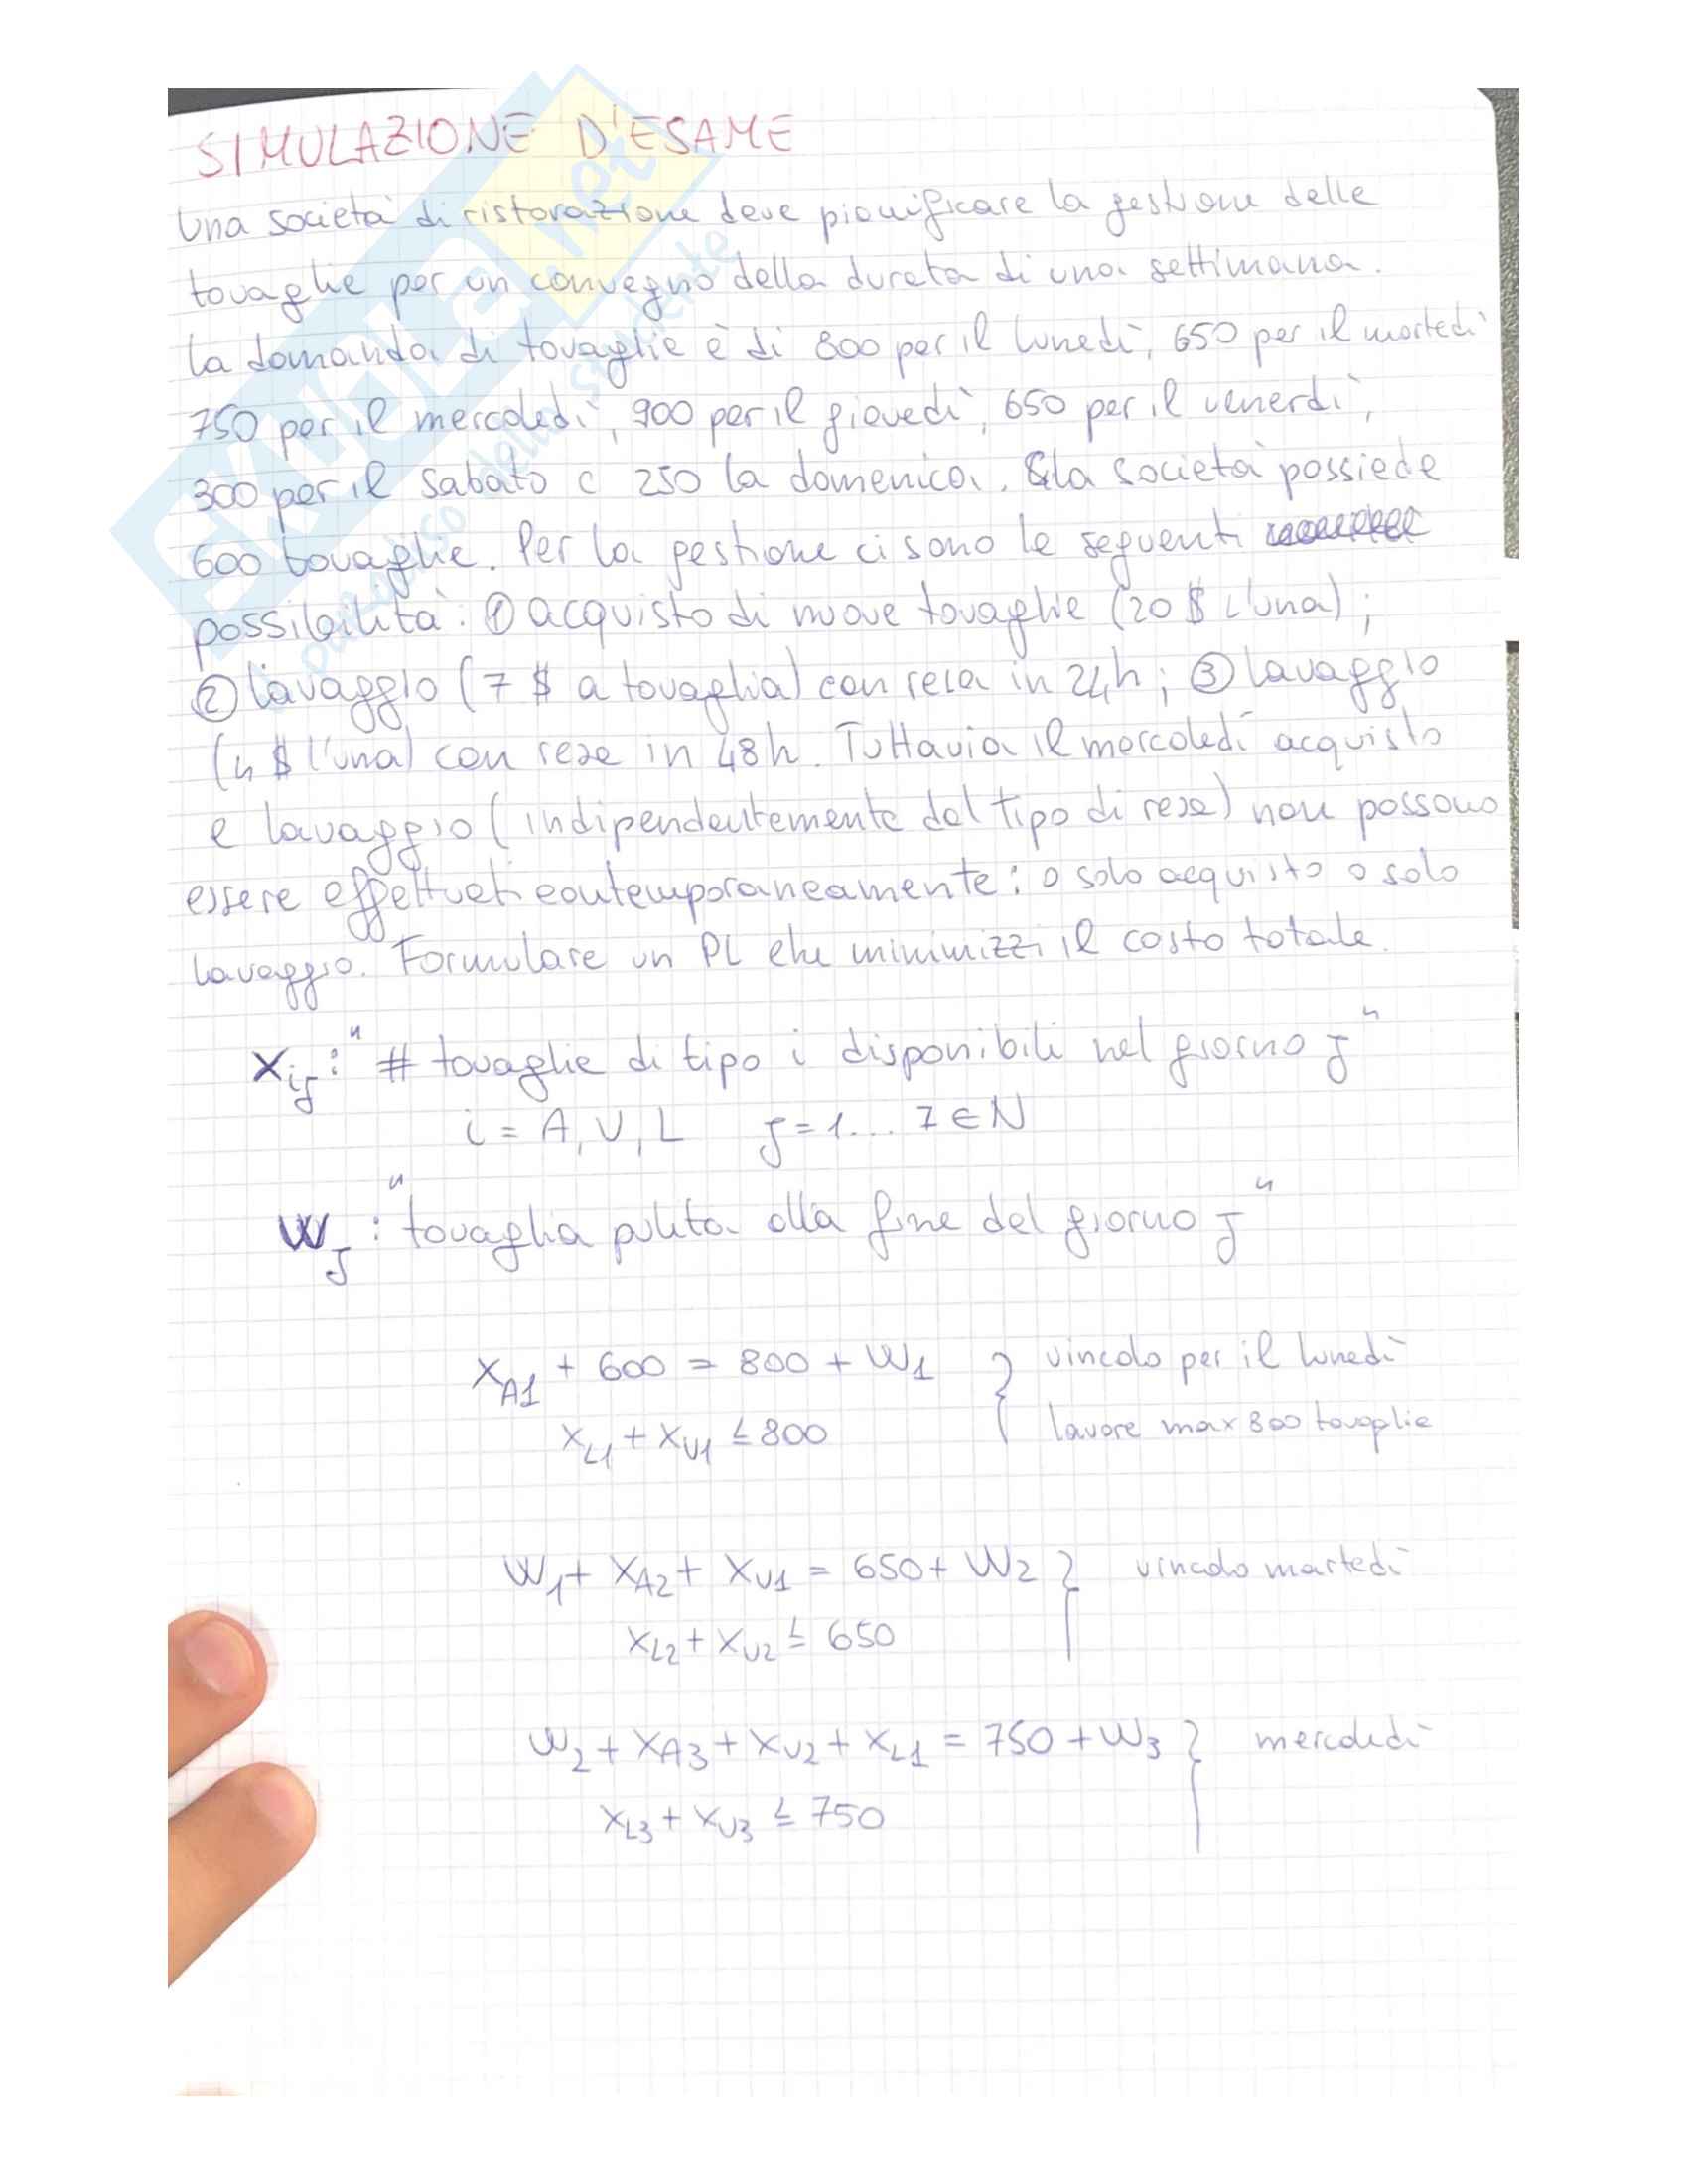 SIMULAZIONE D'ESAME
Una società di ristorazione deve pianificare la gestione delle
tovaglie per un convegno della durata di una settimana.
la domanda di tovaglie è di 800 per il lunedì, 650 per il martedì
750 per il mercoledì, 900 per il giovedì, 650 per il venerdì,
300 per il sabato e 250 la domenica. la società possiede
600 tovaglie. Per la gestione ci sono le seguenti
possibilità: ① acquisto di nuove tovaglie (20 $ l'una);
② lavaggio (7 $ a tovaglia) con resa in 24h; ③ lavaggio
(4 $ l'una) con resa in 48h. Tuttavia il mercoledì acquisto
e lavaggio (indipendentemente dal tipo di resa) non possono
essere effettuati contemporaneamente: o solo acquisto o solo
lavaggio. Formulare un PL che minimizzi il costo totale.
Xij: "# tovaglie di tipo i disponibili nel giorno J"
i = A, V, L J = 1... 7 ∈ N
WJ: "tovaglia pulita alla fine del giorno J"
XA1 + 600 = 800 + W1 } vincolo per il lunedì
XL1 + XV1 ≤ 800 lavare max 800 tovaglie
W1 + XA2 + XV1 = 650 + W2 } vincolo martedì
XL2 + XV2 ≤ 650
W2 + XA3 + XV2 + XL1 = 750 + W3 } mercoledì
XL3 + XV3 ≤ 750